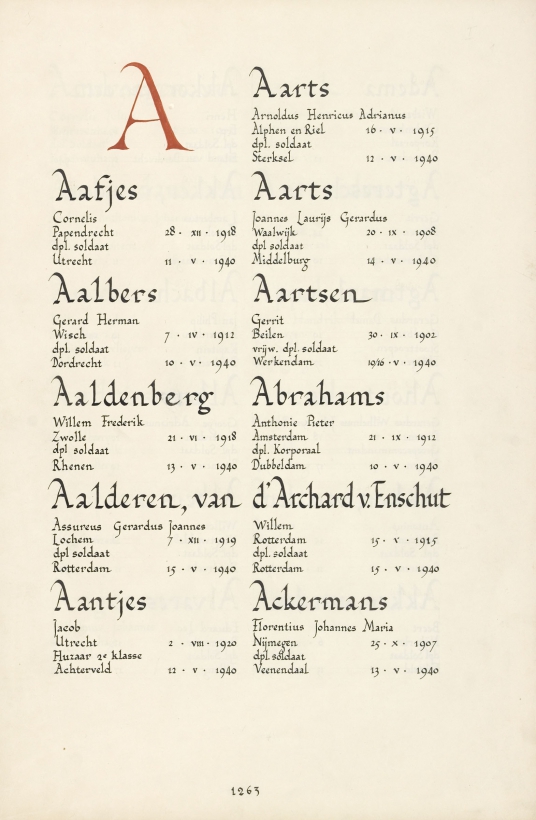 A
Aafjes
Cornelis
Papendrecht 28 · XII · 1918
dpl. soldaat
Utrecht 11 · V · 1940
Aalbers
Gerard Herman
Wisch 7 · IV · 1912
dpl. soldaat
Dordrecht 10 · V · 1940
Aaldenberg
Willem Frederik
Zwolle 21 · VI · 1918
dpl soldaat
Rhenen 13 · V · 1940
Aalderen, van
Assureus Gerardus Joannes
Lochem 7 · XII · 1919
dpl soldaat
Rotterdam 15 · V · 1940
Aantjes
Jacob
Utrecht 2 · VIII · 1920
Huzaar 2e klasse
Achterveld 12 · V · 1940
Aarts
Arnoldus Henricus Adrianus
Alphen en Riel 16 · V · 1915
dpl. soldaat
Sterksel 12 · V · 1940
Aarts
Joannes Laurijs Gerardus
Waalwijk 20 · IX · 1908
dpl soldaat
Middelburg 14 · V · 1940
Aartsen
Gerrit
Beilen 30 · IX · 1902
vrijw. dpl. soldaat
Werkendam 10/16 · V · 1940
Abrahams
Anthonie Pieter
Amsterdam 21 · IX · 1912
dpl. Korporaal
Dubbeldam 10 · V · 1940
d'Archard v. Enschut
Willem
Rotterdam 15 · V · 1915
dpl. soldaat
Rotterdam 15 · V · 1940
Ackermans
Florentius Johannes Maria
Nijmegen 25 · X · 1907
dpl. soldaat
Veenendaal 13 · V · 1940
1263